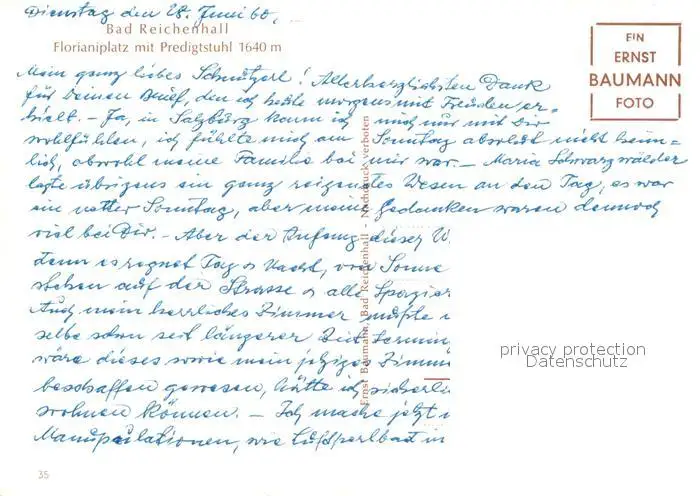 Dienstag den 28. Juni 60,
Bad Reichenhall
Florianiplatz mit Predigtstuhl 1640 m
EIN
ERNST
BAUMANN
FOTO
Mein ganz liebes Schnutzerl! Allerherzlichsten Dank
für Deinen Brief, den ich heute morgens mit Freuden er-
hielt. – Ja, in Salzburg kann ich mich nur mit Dir
wohlfühlen, ich fühlte mich am Sonntag absolut nicht heim-
lich, obwohl meine Familie bei mir war. – Maria Schwarzwälder
legte übrigens ein ganz reizendes Wesen an den Tag, es war
ein netter Sonntag, aber meine Gedanken waren dennoch
viel bei Dir. – Aber der Anfang dieser W
denn es regnet Tag u Nacht, von Sonne
stehen auf der Strasse u alle Spazier
Auch mein herrliches Zimmer mußte
selbe schon seit längerer Zeit termin
wäre dieses sowie mein jetziges Zimm
beschaffen gewesen, hätte ich sicherli
wohnen können. – Ich mache jetzt
Manupulationen, wie Luftperlbad in
Ernst Baumann, Bad Reichenhall - Nachdruck verboten
privacy protection
Datenschutz
35